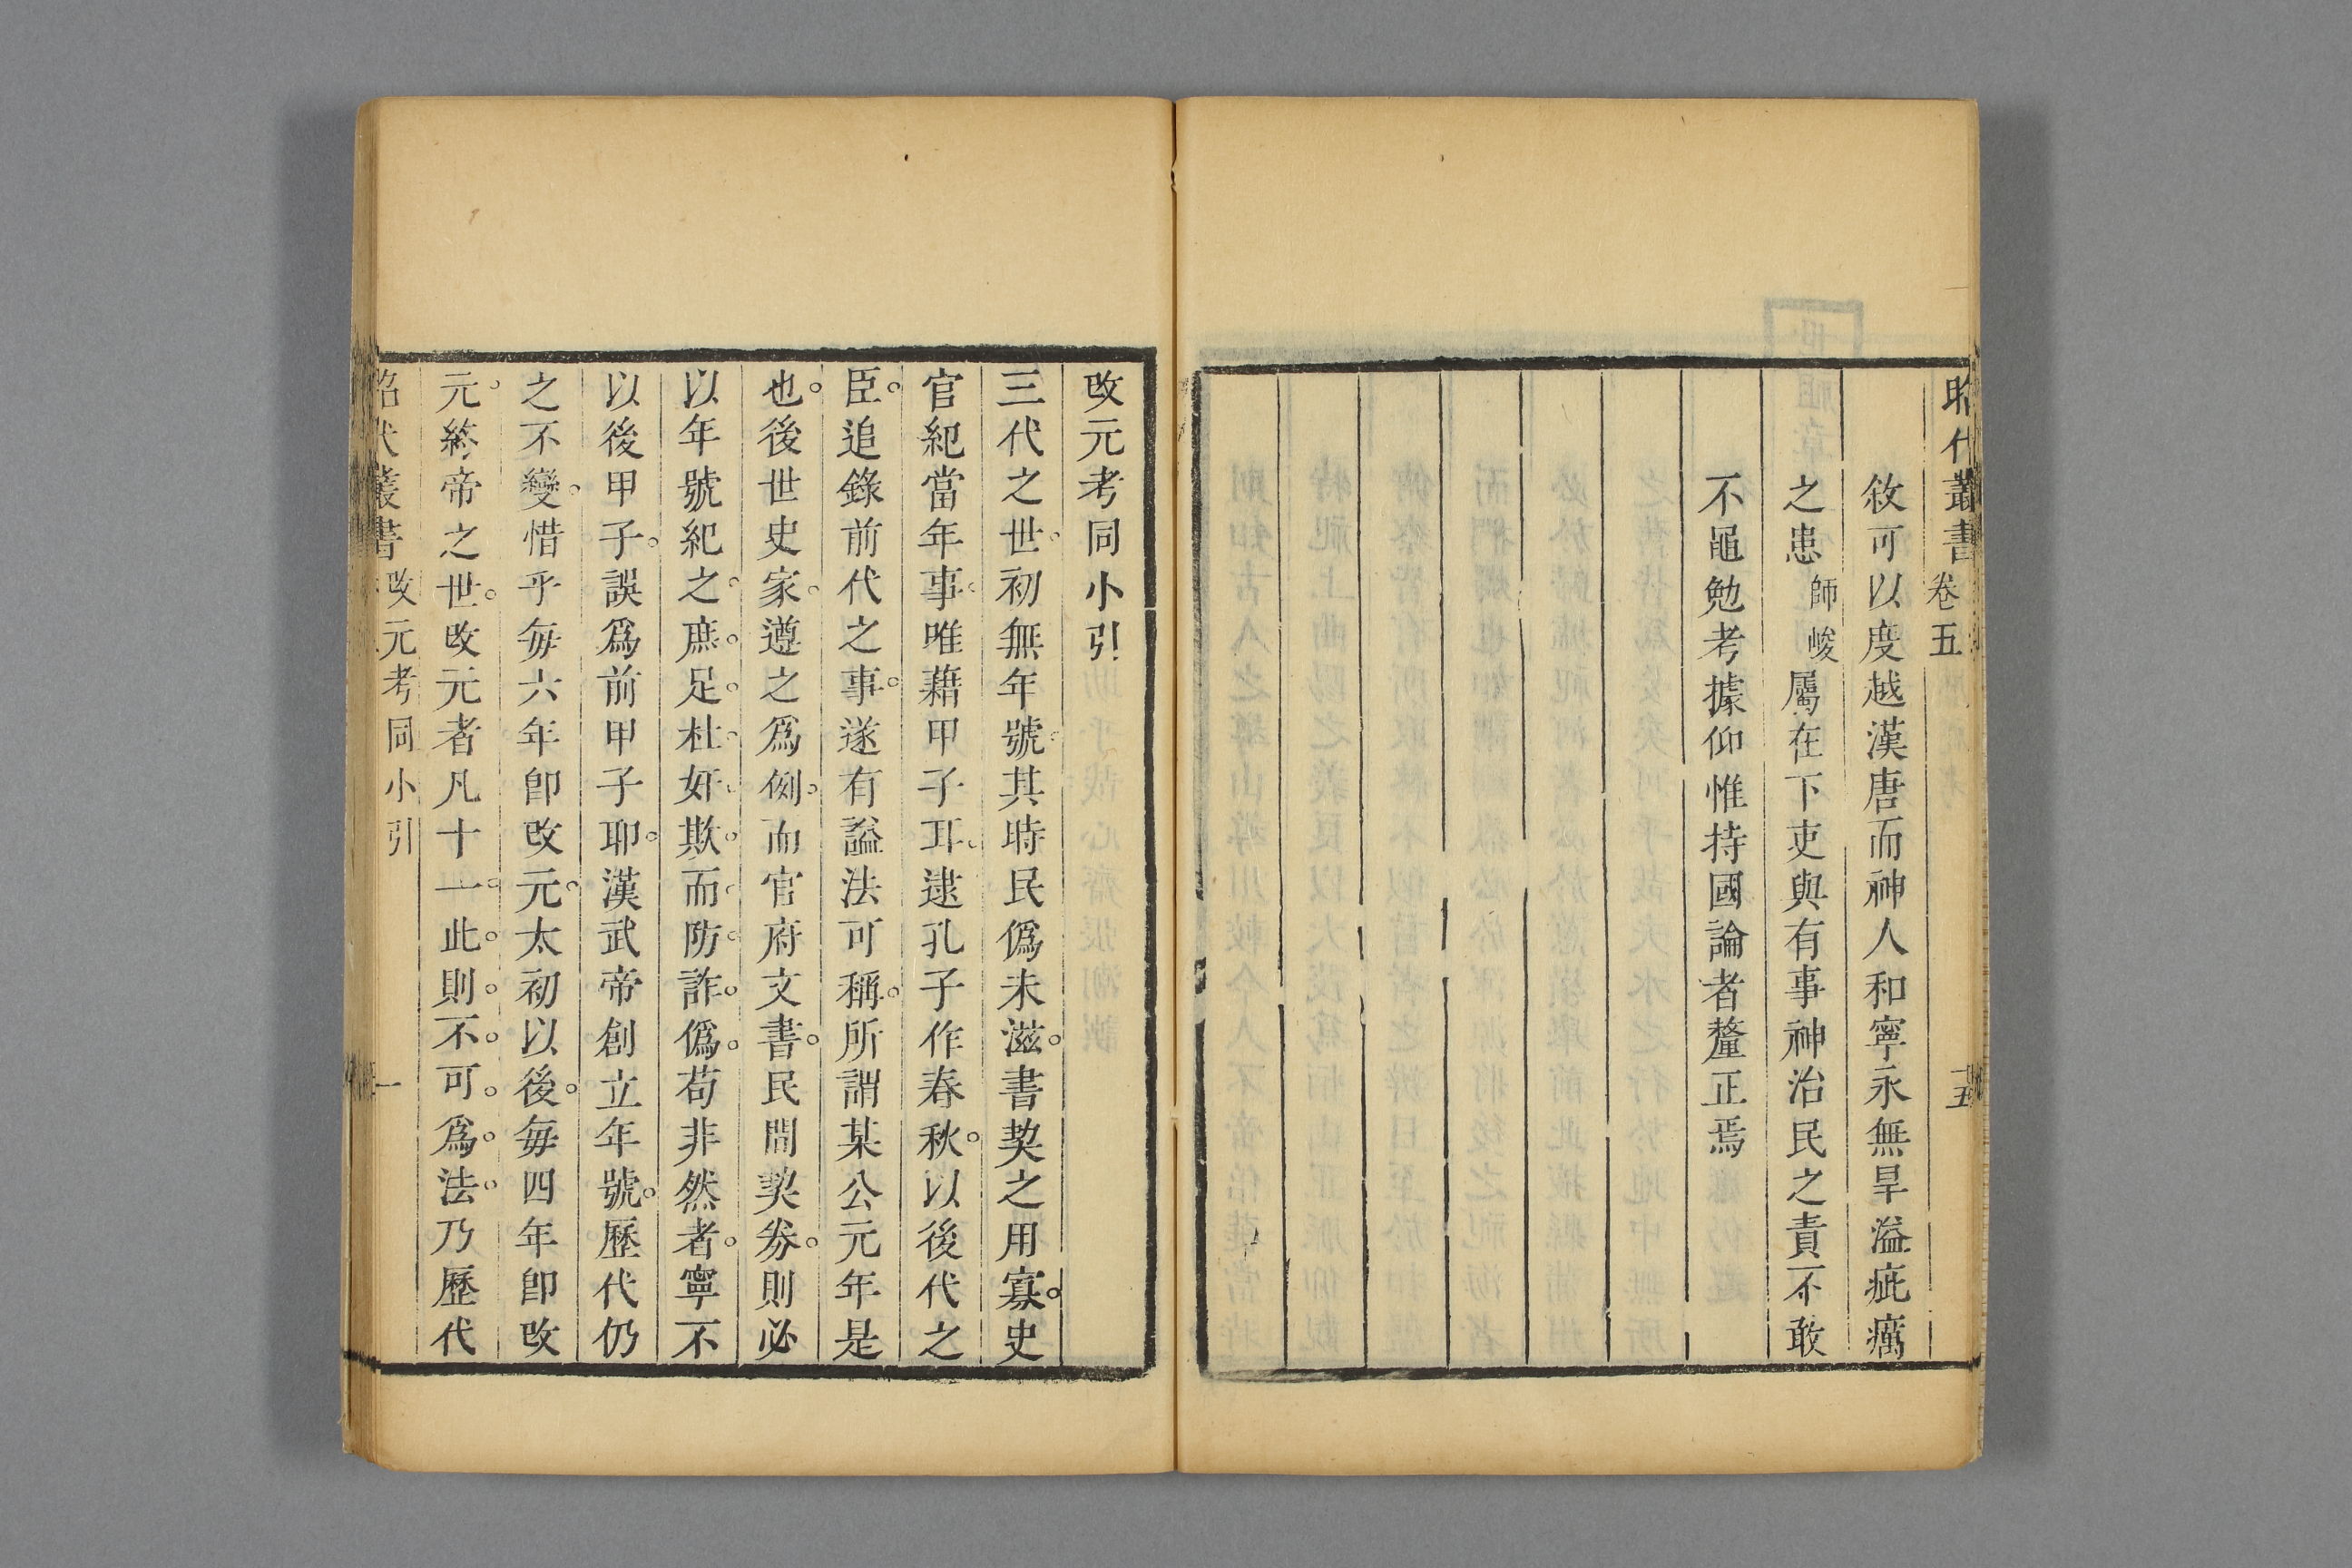 昭代叢書 卷五 十五
敘可以度越漢唐而神人和寧永無旱溢疵癘
之患師峻屬在下吏與有事神治民之責不敢
不黽勉考據仰惟持國論者釐正焉
改元考同小引
三代之世初無年號其時民僞未滋書契之用寡史
官紀當年事唯藉甲子耳逮孔子作春秋以後代之
臣追錄前代之事遂有諡法可稱所謂某公元年是
也後世史家遵之爲例而官府文書民間契劵則必
以年號紀之庶足杜奸欺而防詐僞苟非然者寧不
以後甲子誤爲前甲子耶漢武帝創立年號歷代仍
之不變惜乎每六年卽改元太初以後每四年卽改
元終帝之世改元者凡十一此則不可爲法乃歷代
昭代叢書 改元考同小引 一